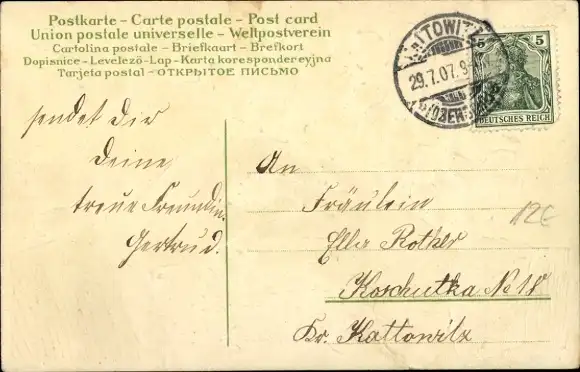 Postkarte – Carte postale – Post card
Union postale universelle – Weltpostverein
Cartolina postale – Briefkaart – Brefkort
Dopisnice – Levelező-Lap – Karta korespondencyjna
Tarjeta postal – ОТКРЫТОЕ ПИСЬМО
29.7.07.9
5 5
DEUTSCHES REICH
sendet Dir
Deine
treue Freundin
Gertrud.
An
Fräulein
Ella Rother
Koschutka No 18
Kr. Kattowitz
12€